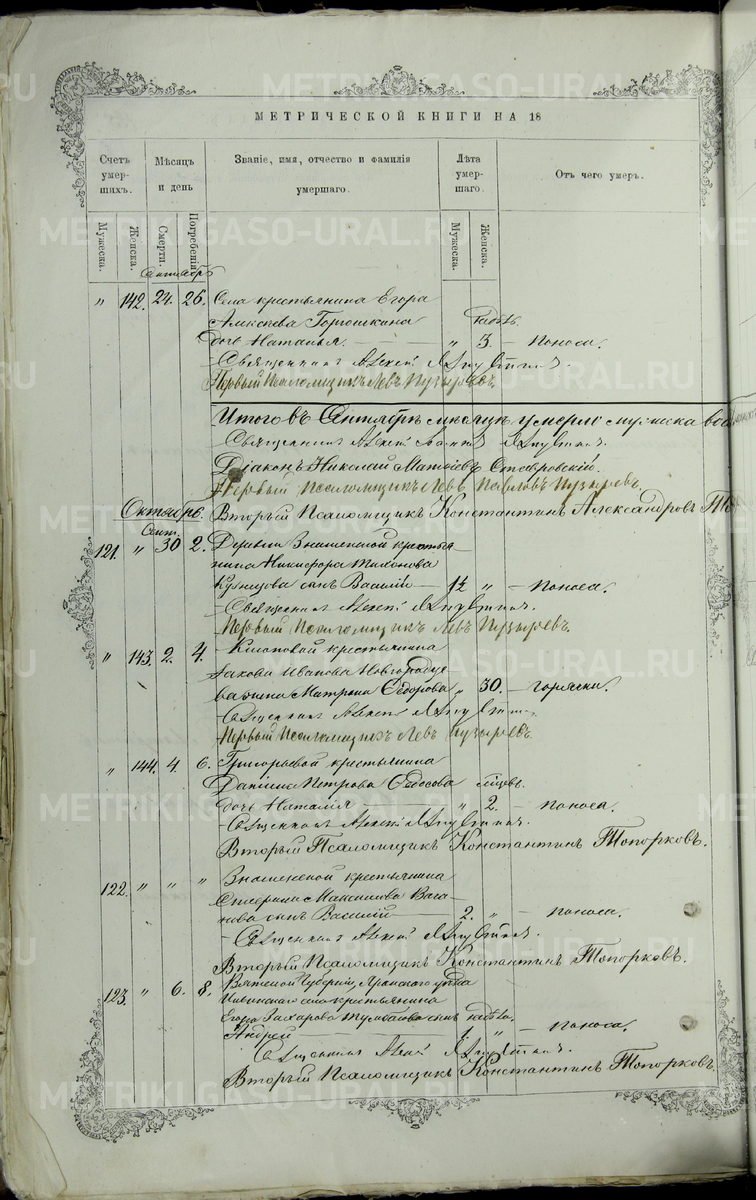 МЕТРИЧЕСКОЙ КНИГИ НА 18
Счетъ умер-шихъ.
Мѣсяцъ и день
Званіе, имя, отчество и фамилія умершаго.
Лѣта умер-шаго.
Отъ чего умеръ.
Мужеска.
Женска.
Смерти.
Погребенія.
Мужеска.
Женска.
Сентябрь
" 142. 24. 26. Села крестьянина Егора
Алексѣева Горюшкина
дочь Наталья " 3. Поноса.
Священникъ Алексій
Первый Псаломщикъ Левъ Пузыревъ.
Итого въ Сентябрѣ мѣсяцѣ умерло мужеска
Священникъ Алексій
Діаконъ Николай Матвѣевъ Ставровскій.
Первый псаломщикъ Левъ Павловъ Пузыревъ.
Октябрь. Вторый Псаломщикъ Константинъ Александровъ
Сент.
121. " 30 2. Деревни Знаменской крестья-
нина Никифора Тихонова
Кузнецова сынъ Василій 1½ " Поноса.
Священникъ Алексій
Первый Псаломщикъ Левъ Пузыревъ.
" 143. 2. 4. крестьянина
Якова Иванова Новгородце
ва жена Матрона Ѳедорова " 30. Горячки.
Священникъ Алексій
Первый Псаломщикъ Левъ Пузыревъ.
" 144. 4. 6. Григорьевой крестьянина
Данила Петрова Ѳедосова мѣсяц.
дочь Наталія " 2. поноса.
Священникъ Алексій
Вторый Псаломщикъ Константинъ Топорковъ.
122. " " " Знаменской крестьянина
Максимова Вага-
нова сынъ Василій 2. " поноса.
Священникъ Алексій
Вторый Псаломщикъ Константинъ Топорковъ.
123. " 6. 8. Вятской Губерніи, Яранскаго уѣзда
крестьянина
Егора Захарова сынъ
Андрей 1 " поноса.
Священникъ Алексій
Вторый Псаломщикъ Константинъ Топорковъ.
METRIKI.GASO-URAL.RU